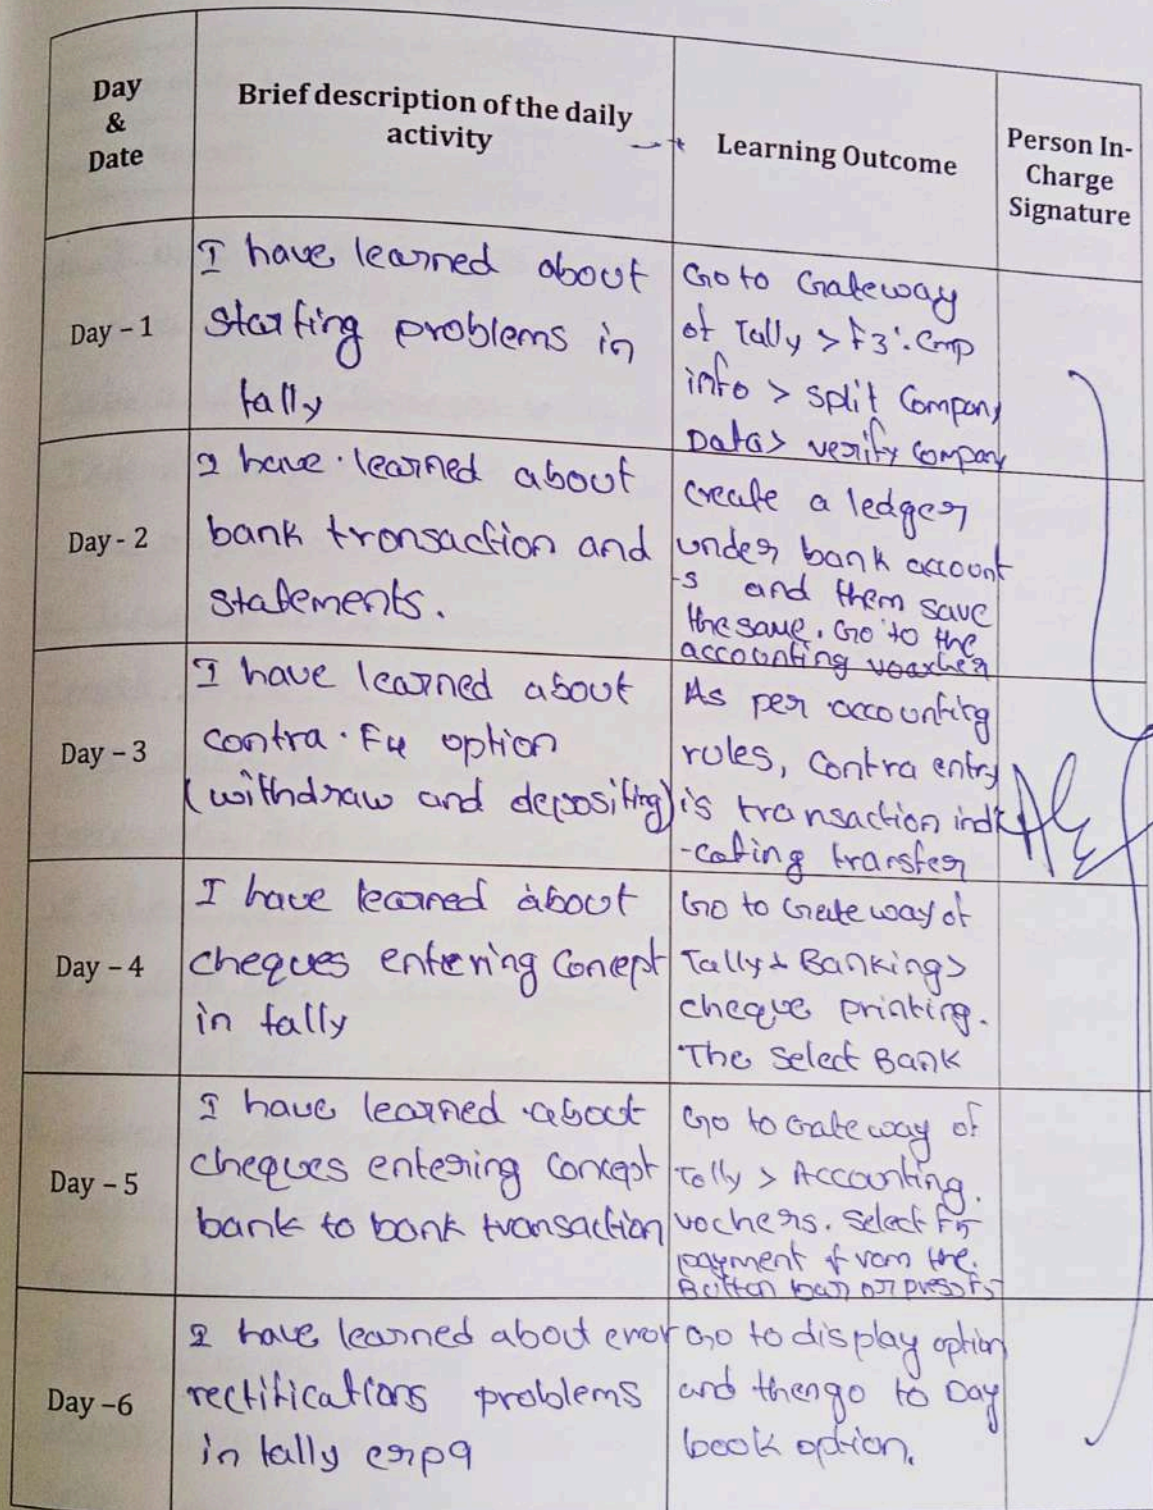 Day
&
Date
Brief description of the daily
activity
Learning Outcome
Person In-
Charge
Signature
Day – 1
I have learned about
starting problems in
tally
Go to Gateway
of Tally > F3: Cmp
info > split Company
Data> verify Company
Day - 2
I have learned about
bank transaction and
statements.
create a ledger
under bank account
-s and them save
the same. Go to the
accounting voucher
Day – 3
I have learned about
contra. F4 option
(withdraw and depositing)
As per accounting
rules, Contra entry
is transaction indi
-cating transfer
Day – 4
I have learned about
cheques entering Concept
in tally
Go to Gateway of
Tally > Banking>
cheque printing.
The Select Bank
Day – 5
I have learned about
cheques entering Concept
bank to bank transaction
Go to Gateway of
Tally > Accounting.
vochers. Select F5
payment from the.
Button bar or press F5
Day –6
I have learned about error
rectifications problems
in tally erp9
Go to display option
and then go to Day
book option.